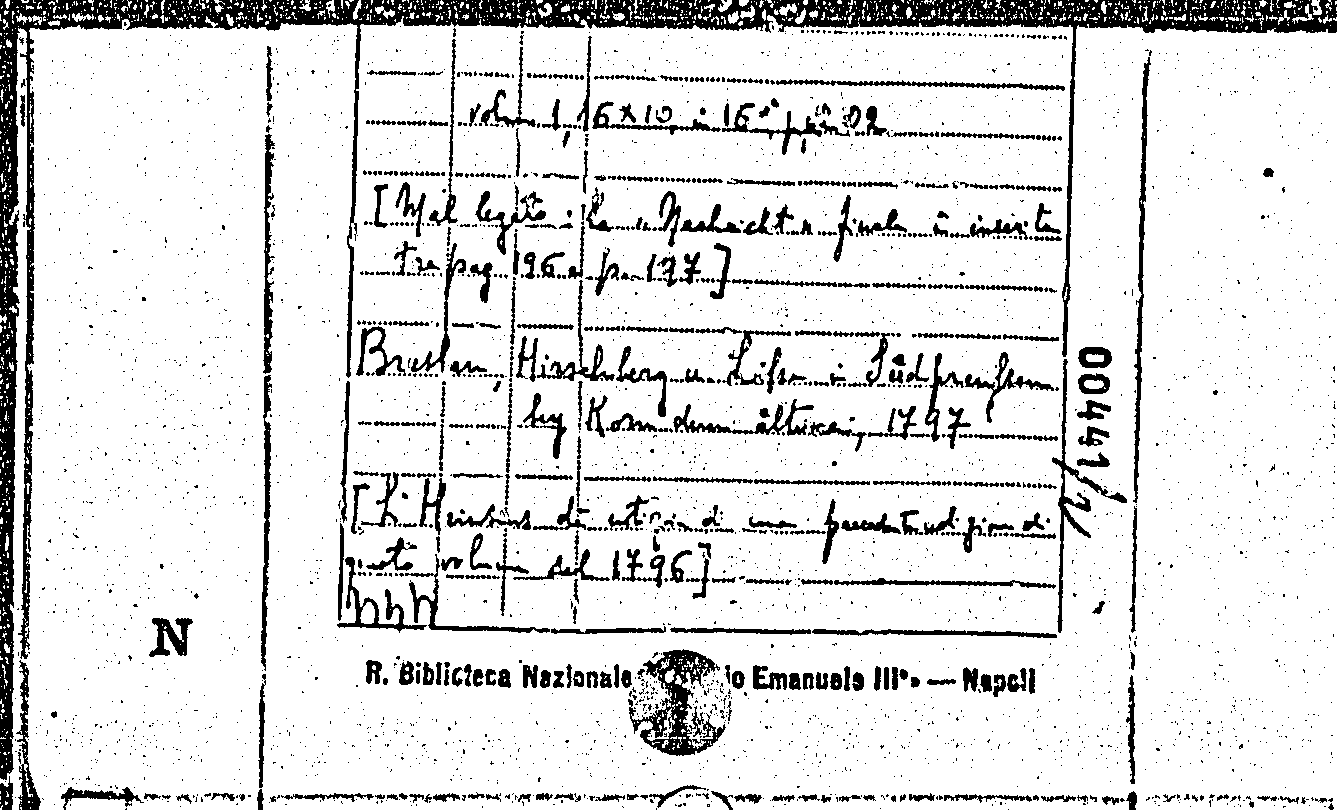 volume 1, 16×10, in 16°,
[Mal legato: la "Nachricht" finale è inserita
tra pag 196 e pa 197]
Breslau, Hirschberg u. Lissa in Südpreussen
bey Korn dem ältern, 1797
[L'Heinsius dà notizia di una precedente edizione di
questo volume del 1796]
00441/2
N
R. Biblioteca Nazionale Emanuele III° » — Napoli